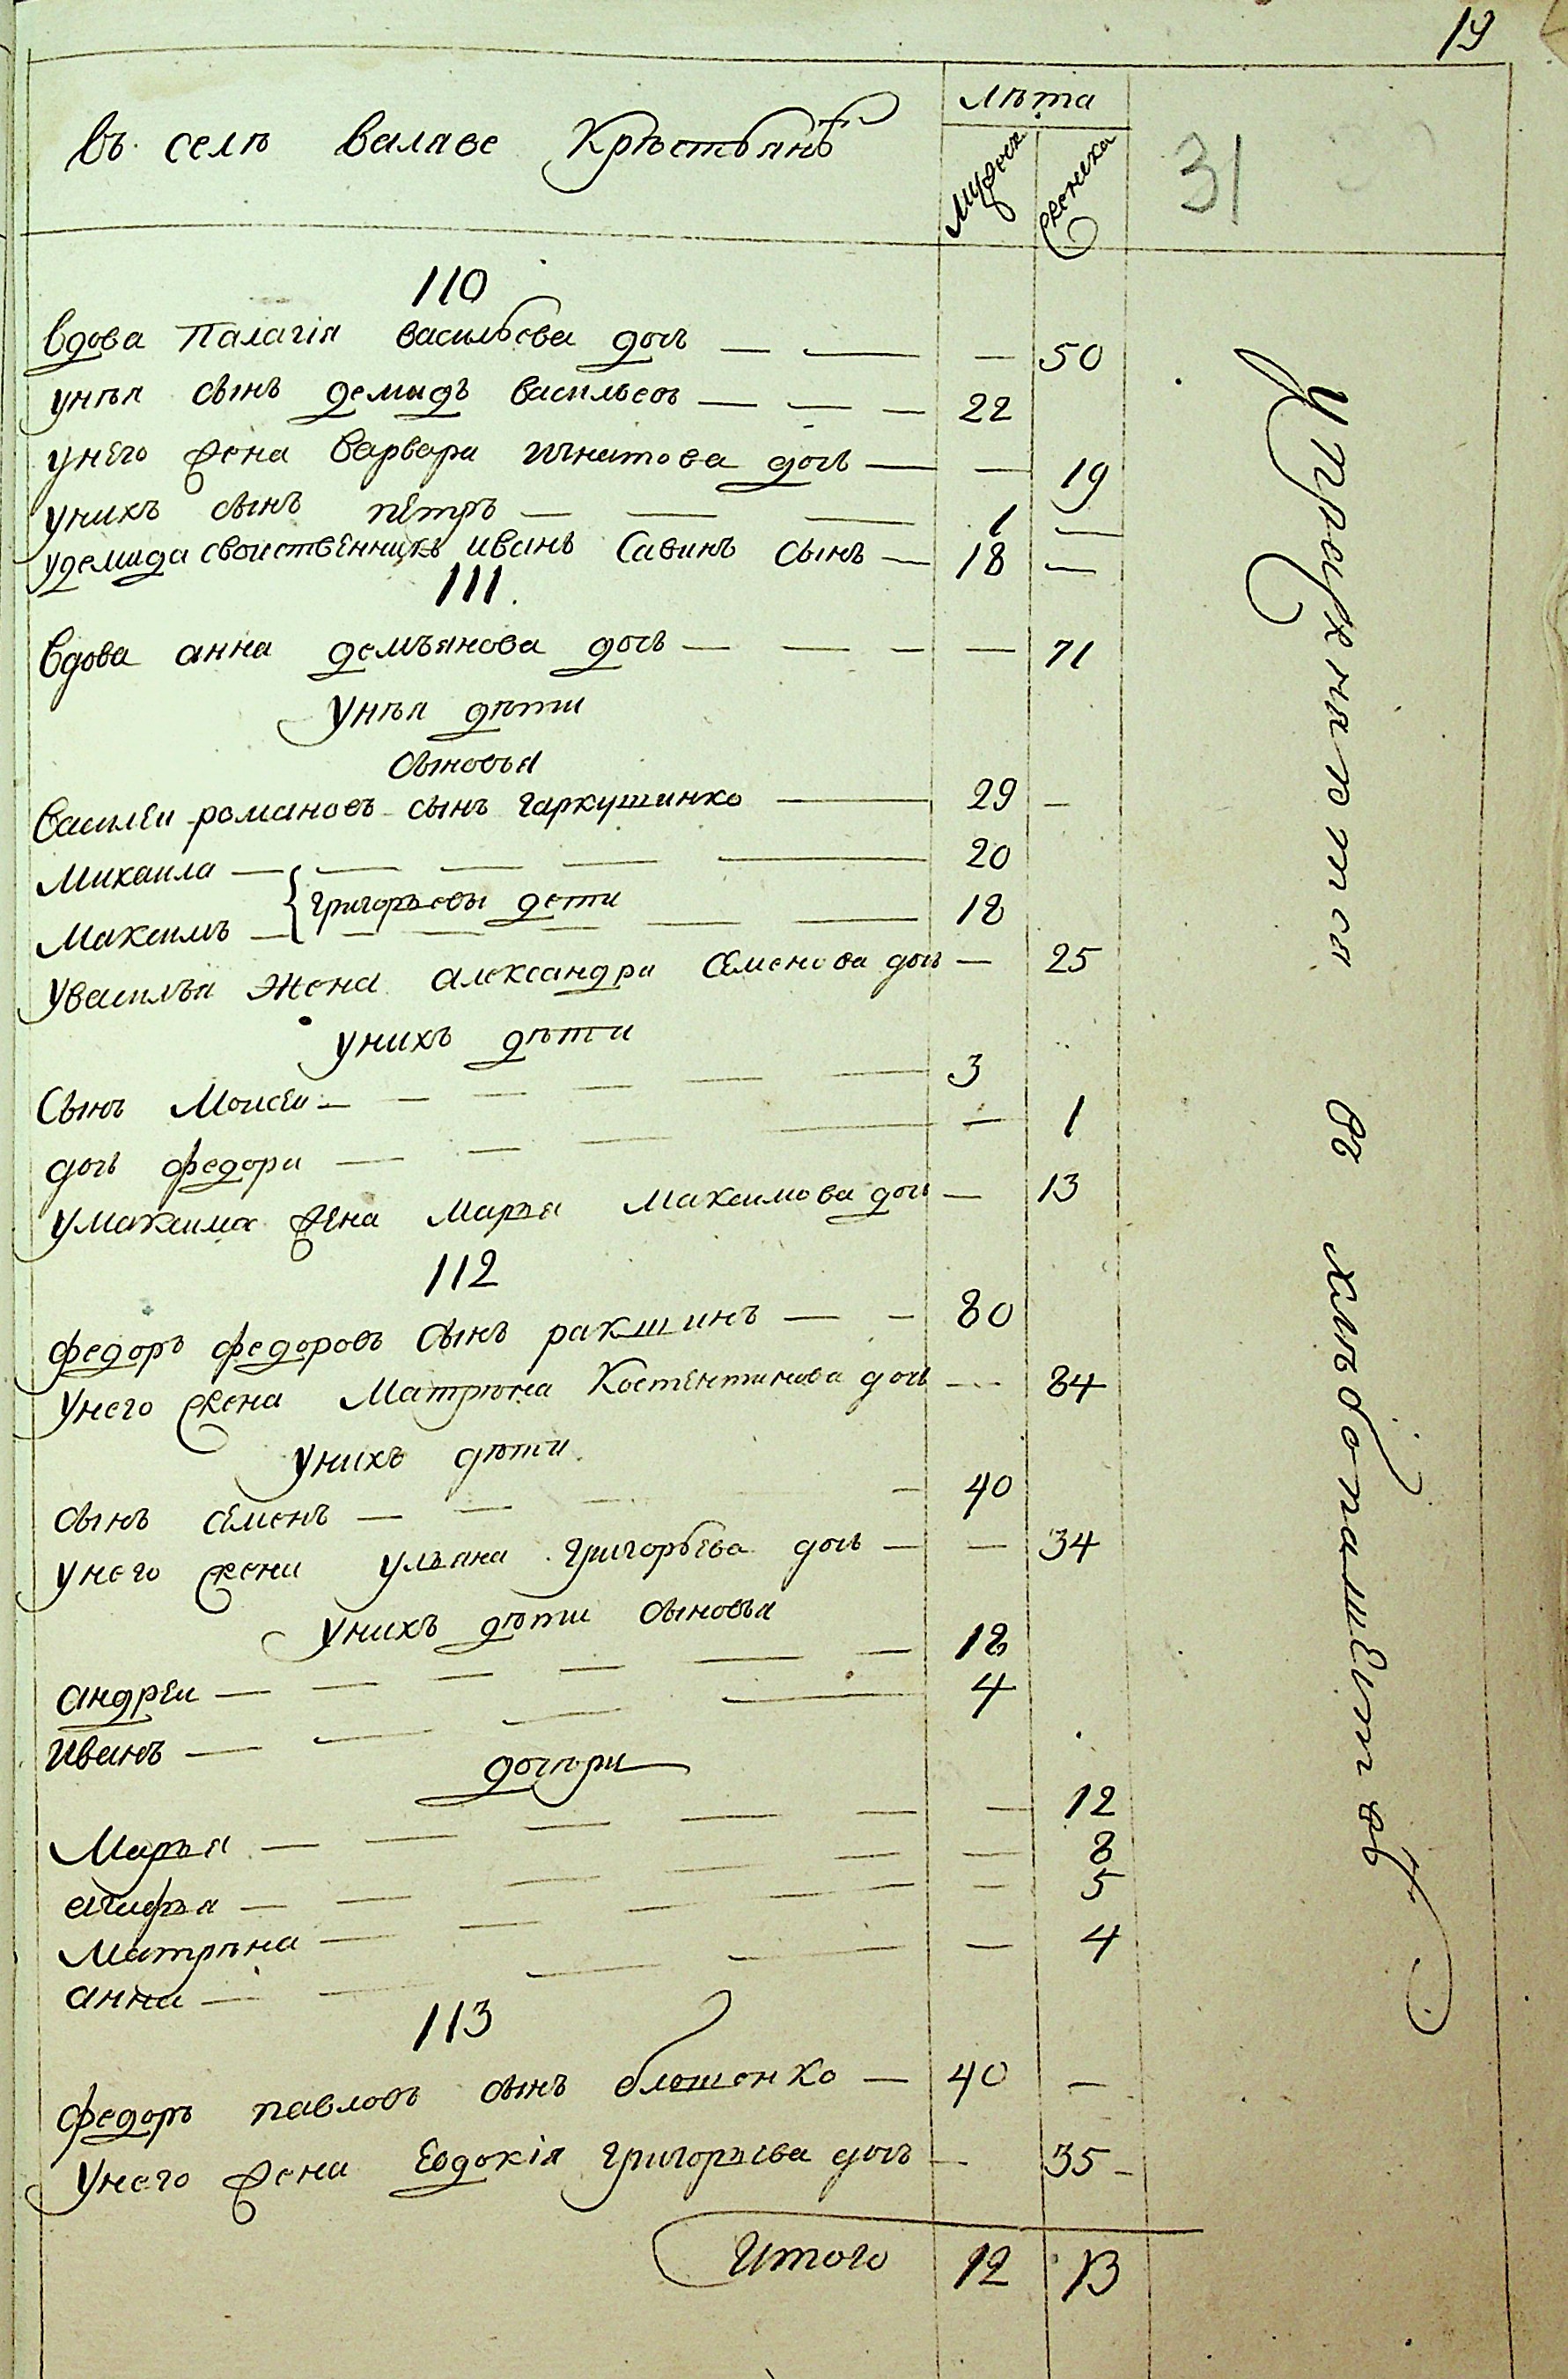 19
въ селѣ валаве Крѣстьянъ
лѣта
мужеск
женска
31
110
вдова Палагія васильева дочь — — — 50
унѣя сынъ демидъ васильевъ — — — 22
унего жена варвара игнатова дочь — — 19
унихъ сынъ пётръ — — — 1 —
удемида своиственникъ иванъ Савинъ сынъ — 18 —
111
вдова анна демъянова дочь — — — — 71
Унѣя дѣти
сыновья
василеи романовъ сынъ гаркушинко — 29 —
Михаила — — — — — 20
григорьевы дети
Максимъ — — — — — 18
Увасилья Жена александра семенова дочь — 25
унихъ дѣти
Сынъ Моисеи — — — — — 3
дочь федора — — — — — 1
умаксима жена марья максимова дочь — 13
112
федоръ федоровъ сынъ ракшинъ — — 80
Унего жена Матрона Костентинова дочь — 84
Унихъ дѣти
сынъ семенъ — — — — 40
унего жена ульяна григорьева дочь — — 34
Унихъ дѣти сыновья
андреи — — — — — — 18
иванъ — — — — 4
дочѣри
Марья — — — — — — 12
агафья — — — — — — 8
Матрѣна — — — — — 5
анна — — — — — 4
113
федоръ павловъ сынъ блошенко — 40 —
Унего жена Евдокія григорьева дочь — 35 —
Итого 12 13
Упражняютса въ хлѣбопашествѣ